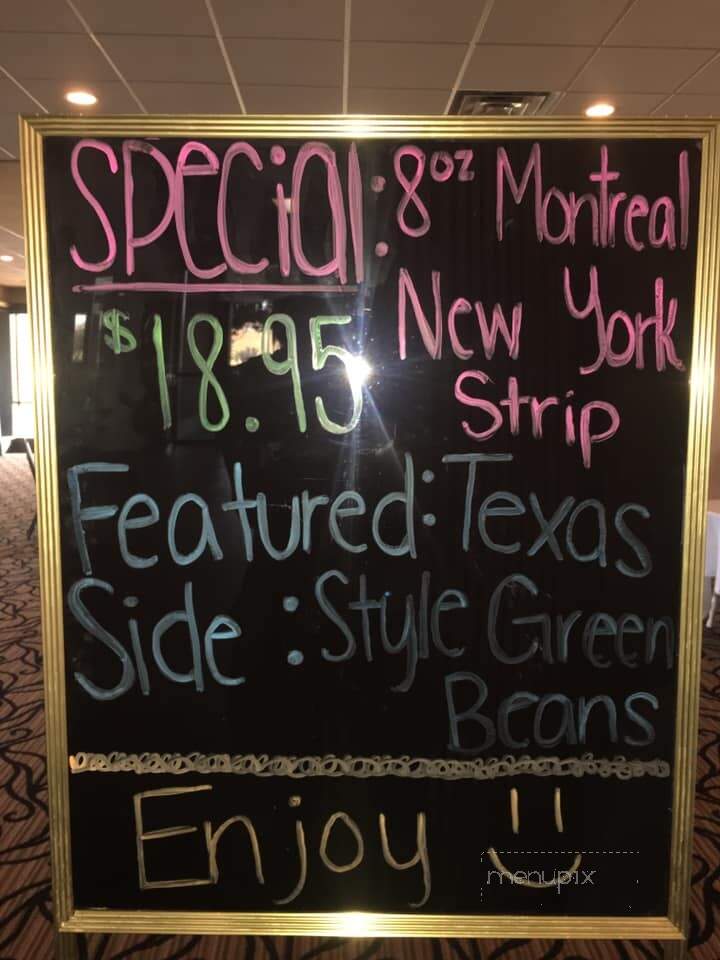 Special: 8oz Montreal
$18.95 New York
Strip
Featured: Texas
Side: Style Green
Beans
Enjoy
menupix